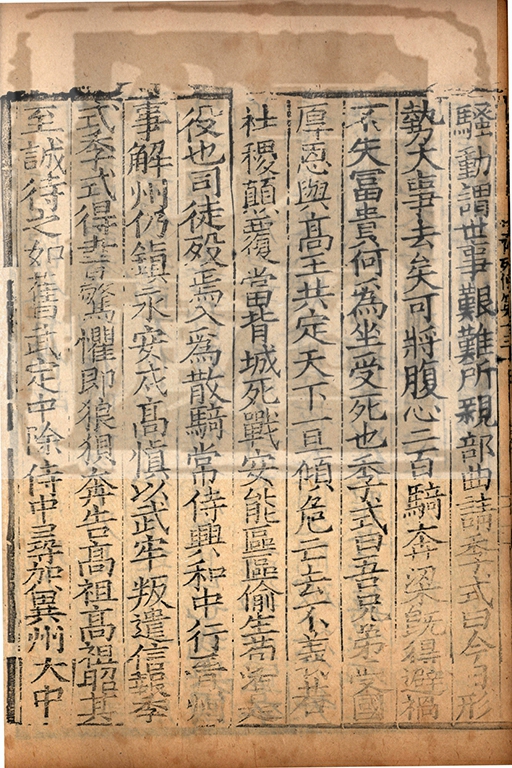 騷動謂世事艱難所親部曲請季式曰今日形
勢大事去矣可將腹心二百騎奔梁既得避禍
不失冨貴何爲坐受死也季式曰吾兄弟受國
厚恩與髙王共定天下一旦傾危亡去不義若
社稷顛覆當背城死戰安能區區偷生苟活是
役也司徒歿焉入爲散騎常侍興和中行晉州
事解州仍鎮永安戍髙慎以武牢叛遣信報季
式季式得書驚懼即狼狽奔告髙祖髙祖昭其
至誠待之如舊武定中除侍中尋加兾州大中